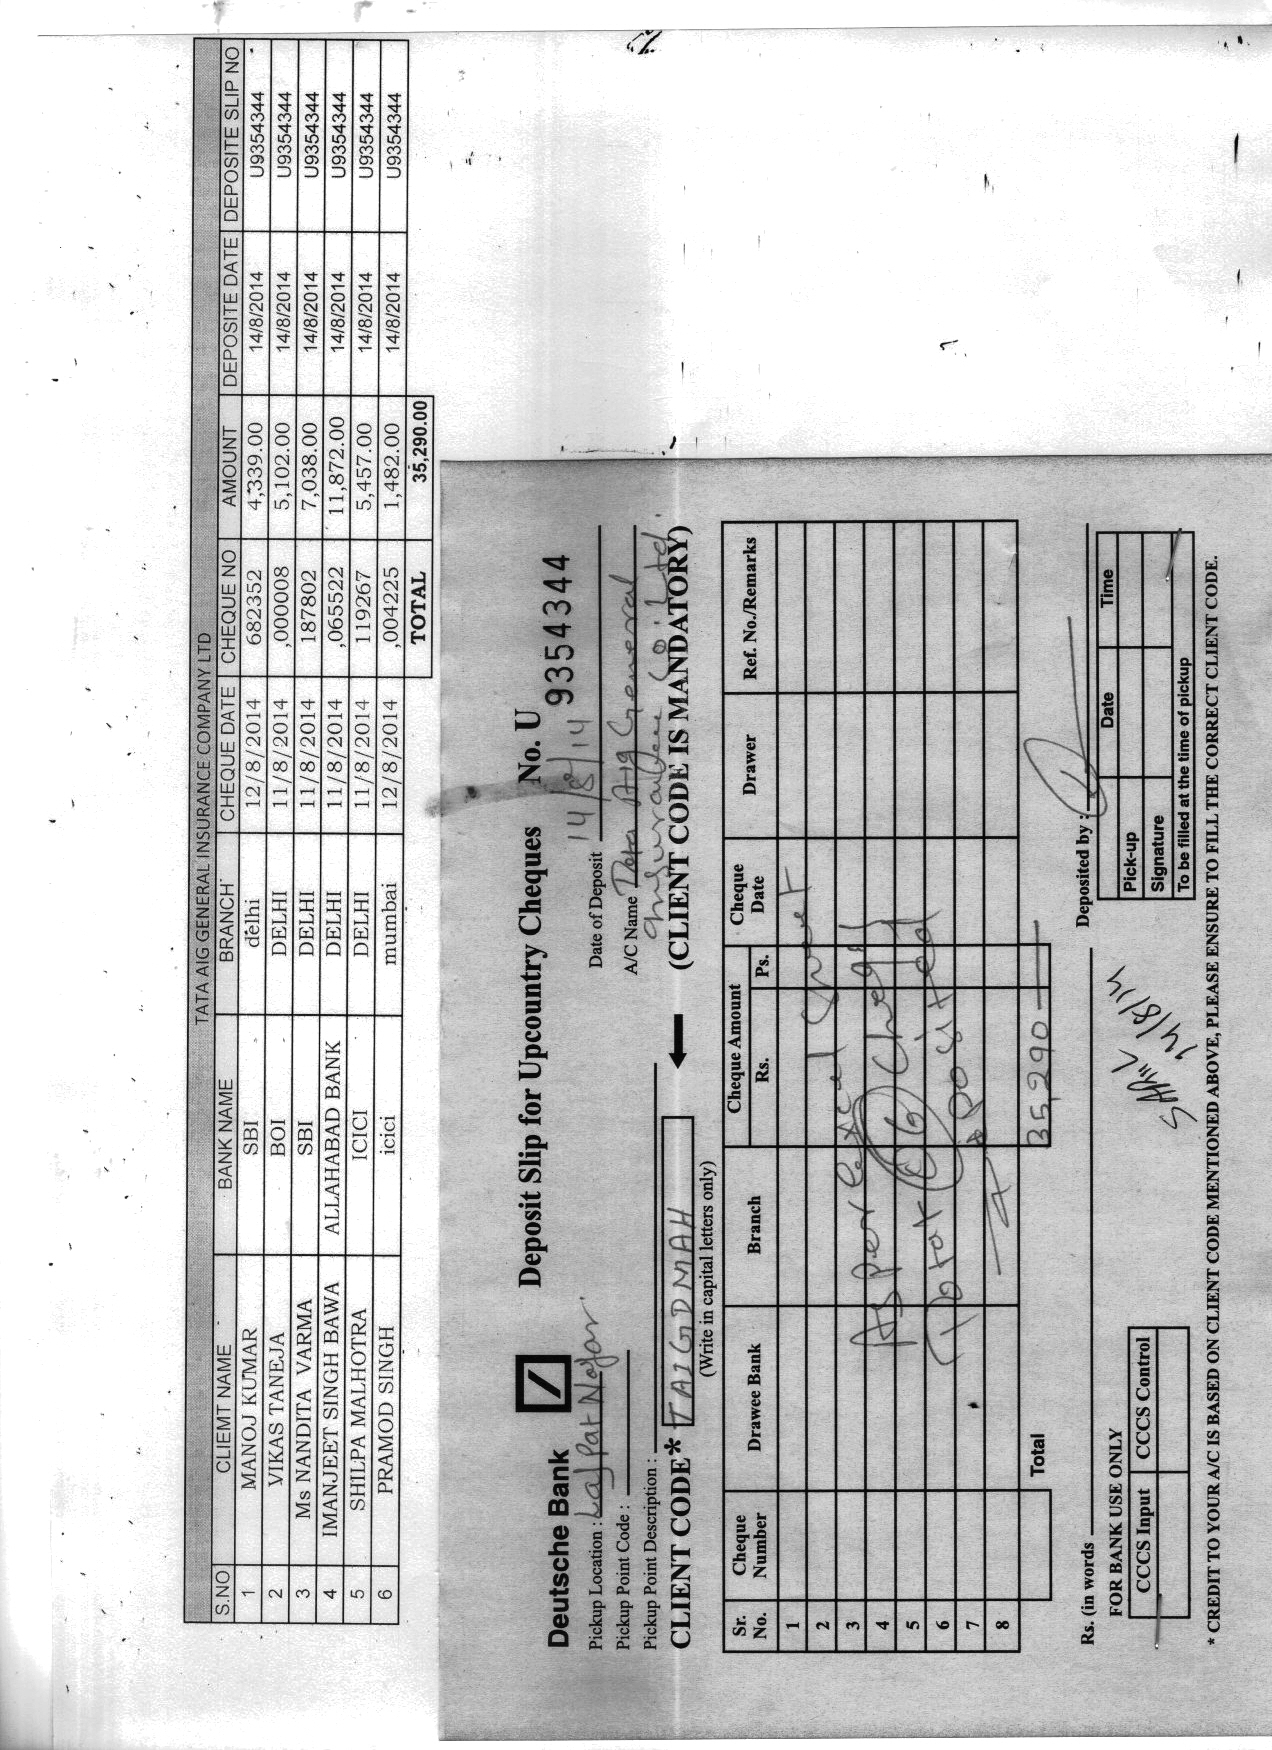 TATA AIG GENERAL INSURANCE COMPANY LTD
S.NO CLIEMT NAME BANK NAME BRANCH CHEQUE DATE CHEQUE NO AMOUNT DEPOSITE DATE DEPOSITE SLIP NO
1 MANOJ KUMAR SBI delhi 12/8/2014 682352 4,339.00 14/8/2014 U9354344
2 VIKAS TANEJA BOI DELHI 11/8/2014 ,000008 5,102.00 14/8/2014 U9354344
3 Ms NANDITA VARMA SBI DELHI 11/8/2014 187802 7,038.00 14/8/2014 U9354344
4 IMANJEET SINGH BAWA ALLAHABAD BANK DELHI 11/8/2014 ,065522 11,872.00 14/8/2014 U9354344
5 SHILPA MALHOTRA ICICI DELHI 11/8/2014 119267 5,457.00 14/8/2014 U9354344
6 PRAMOD SINGH icici mumbai 12/8/2014 ,004225 1,482.00 14/8/2014 U9354344
TOTAL 35,290.00
Deutsche Bank Deposit Slip for Upcountry Cheques No. U 9354344
Pickup Location : Lajpat Nagar Date of Deposit 14/8/14
Pickup Point Code : A/C Name Tata AIG General
Pickup Point Description : Insurance Co. Ltd
CLIENT CODE* TAIGDMAH (CLIENT CODE IS MANDATORY)
(Write in capital letters only)
Sr. No. Cheque Number Drawee Bank Branch Cheque Amount Rs. Ps. Cheque Date Drawer Ref. No./Remarks
1
2
3 As per Excel sheet
4
5 Total (6) Chegs
6 deposited
7
8
Total 35,290
Rs. (in words Deposited by :
FOR BANK USE ONLY
CCCS Input CCCS Control
14/8/14
Pick-up Date Time
Signature
To be filled at the time of pickup
* CREDIT TO YOUR A/C IS BASED ON CLIENT CODE MENTIONED ABOVE, PLEASE ENSURE TO FILL THE CORRECT CLIENT CODE.